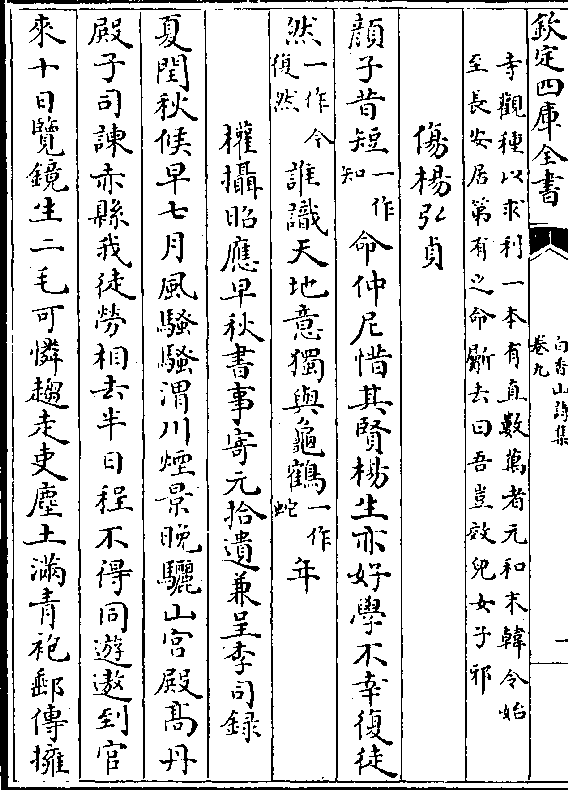 欽定四庫全書
白香山詩集
卷九
一
寺觀種以求利一本有直數萬者元和末韓令始
至長安居第有之命斸去曰吾豈效兒女子邪
傷楊弘貞
顔子昔短一作知命仲尼惜其賢楊生亦好學不幸復徒
然一作今復然誰識天地意獨與龜鶴一作蛇年
權攝昭應早秋書事寄元拾遺兼呈李司録
夏閏秋候早七月風騷騷渭川煙景晚驪山宮殿高丹
殿子司諫赤縣我徒勞相去半日程不得同遊遨到官
來十日覽鏡生二毛可憐趨走吏塵土滿青袍郵傳擁